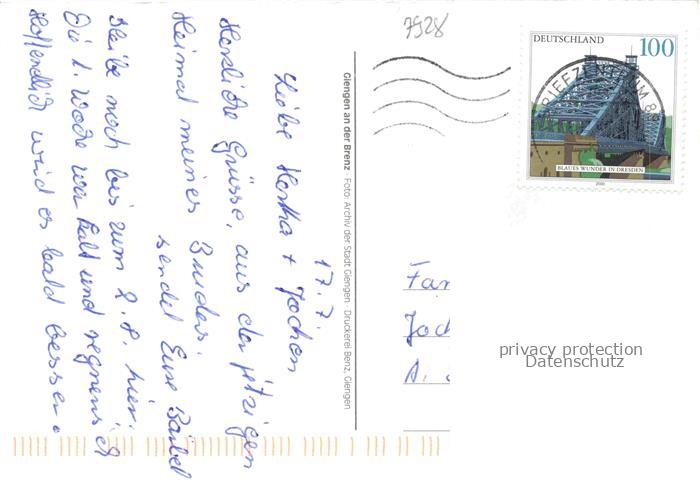 17.7.
Liebe Hertha + Jochen
Herzliche Grüsse, aus der jetzigen
Heimat meines Bruders.
sendet Eure Bärbel
Bleibe noch bis zum 2.8. hier.
Die 1. Woche war kalt und regnerisch
Hoffentlich wird es bald besser.
Giengen an der Brenz Foto: Archiv der Stadt Giengen · Druckerei Benz, Giengen
7928
DEUTSCHLAND 100
BRIEFZENTRUM 89
BLAUES WUNDER IN DRESDEN
2000
Fam
Joch
A.
privacy protection
Datenschutz